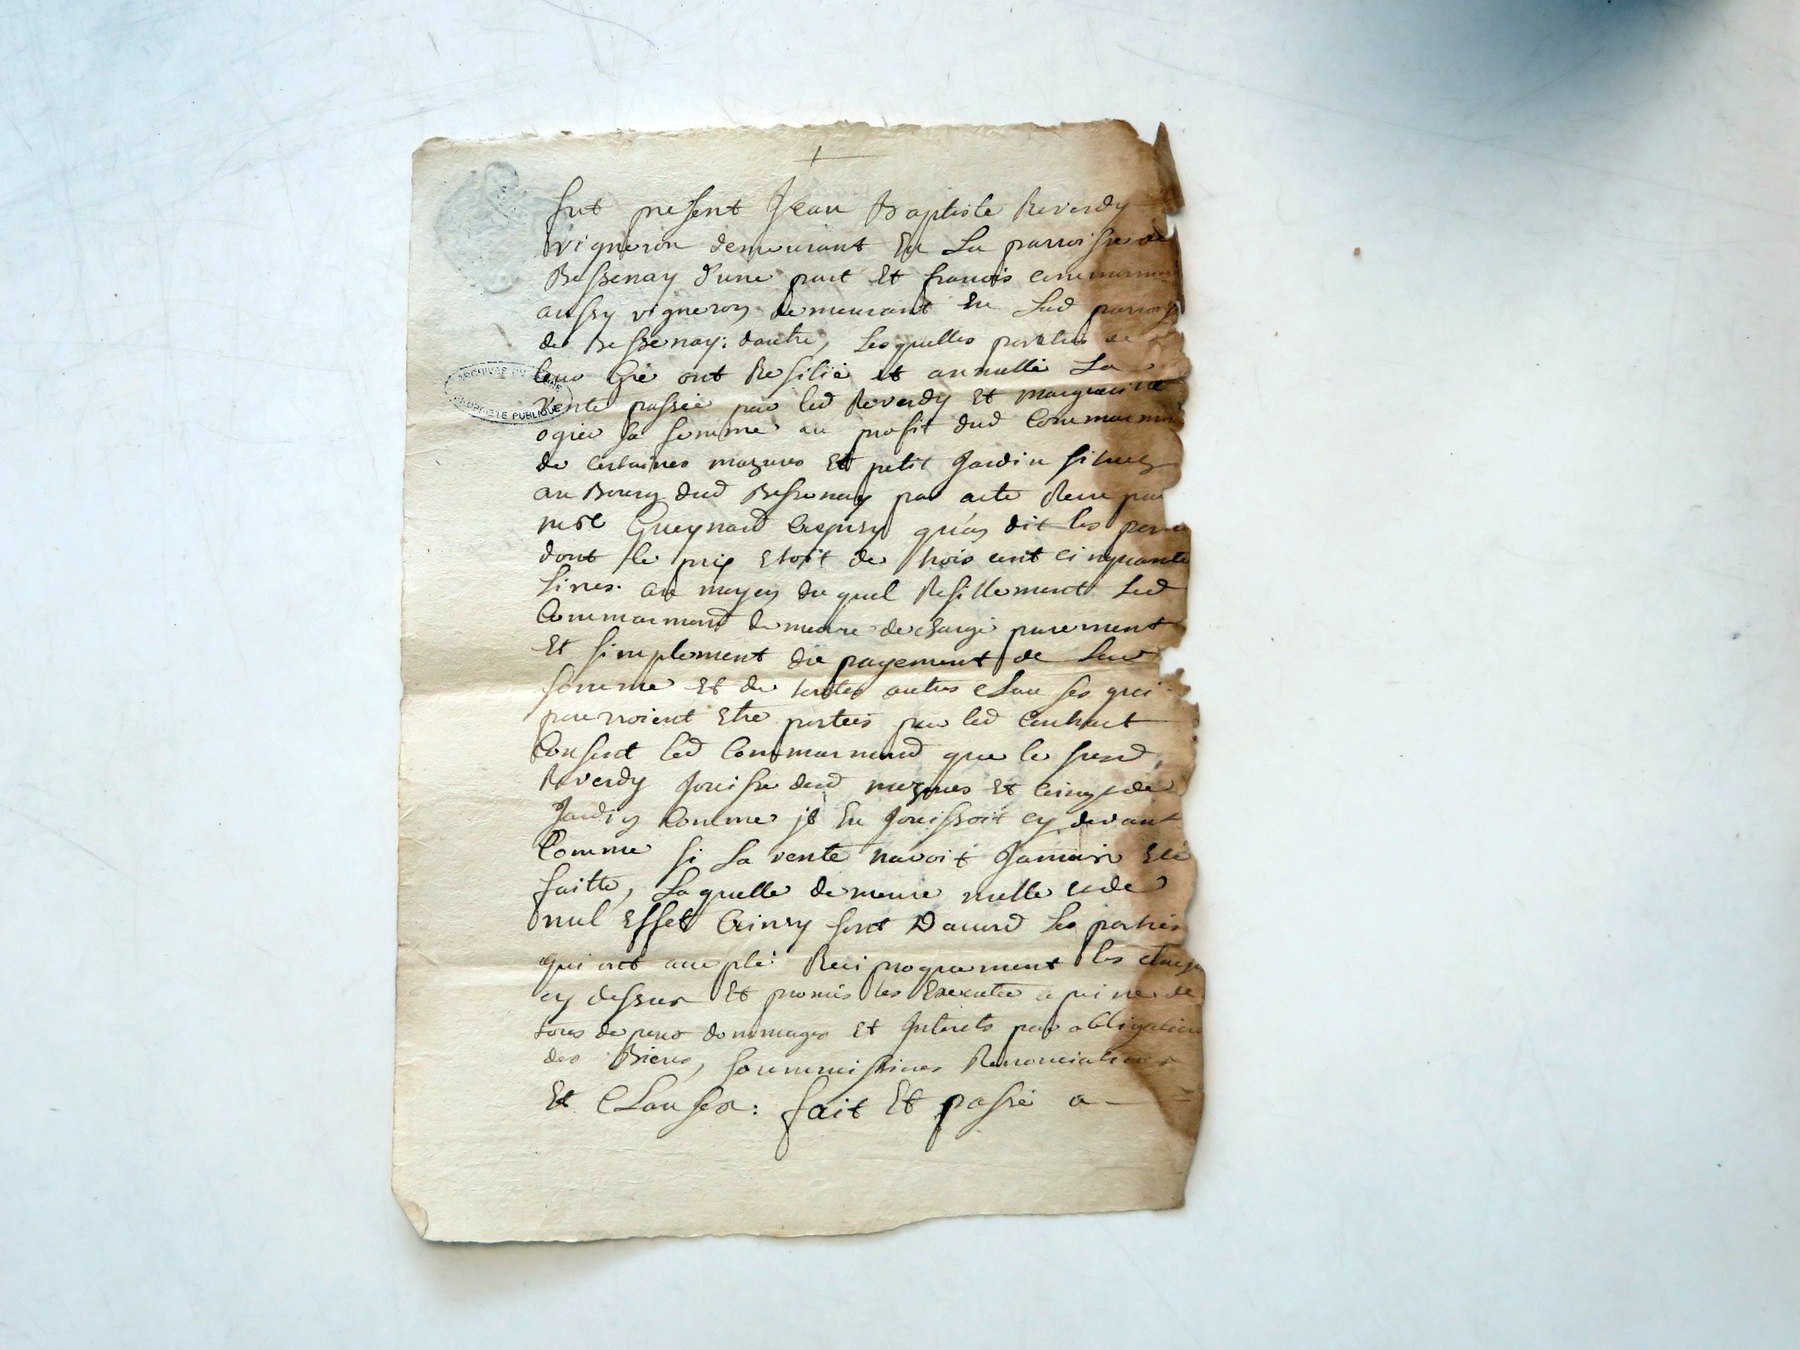 fut present Jean Baptiste Reverdy
vigneron demeurant En La parroisse de
Bessenay d'une part Et francois commarmon
aussy vigneron demeurant En Lad parroi
de Bessenay; dautre, Lesquelles parties de
leur Gré ont Resilié et annullé La
vente passée par led Reverdy Et marguerite
ogier sa femme au profit dud Commarmon
de certaines mazures Et petit Jardin situez
au Bourg dud Bessenay par acte Receu par
me Gueynard ainsy quon dit les par
dont le prix Etoit de trois cent cinquante
Livres. au moyen duquel Resillement Led
Commarmond demeure dechargé purement
Et simplement du payement de Lad
somme Et de toutes autres Clauses qui
pourroient Etre portées par led Contract
Consent led Commarmond que le susd
Reverdy Jouisse desd mazures Et
Jardin Comme il En Jouissoit cy devant
Comme si La vente navoit Jamais Eté
faitte, Laquelle demeure nulle et de
nul Effet Ainsy sont Daccord Les parties
qui ont accepté Reciproquement les
cy dessus Et promis les Executer a peine de
tous depens dommages Et Interets par obligation
des Biens, soummissions Renonciations
Et Clauses: fait Et passé a
ARCHIVES DU RHÔNE
PROPRIÉTÉ PUBLIQUE